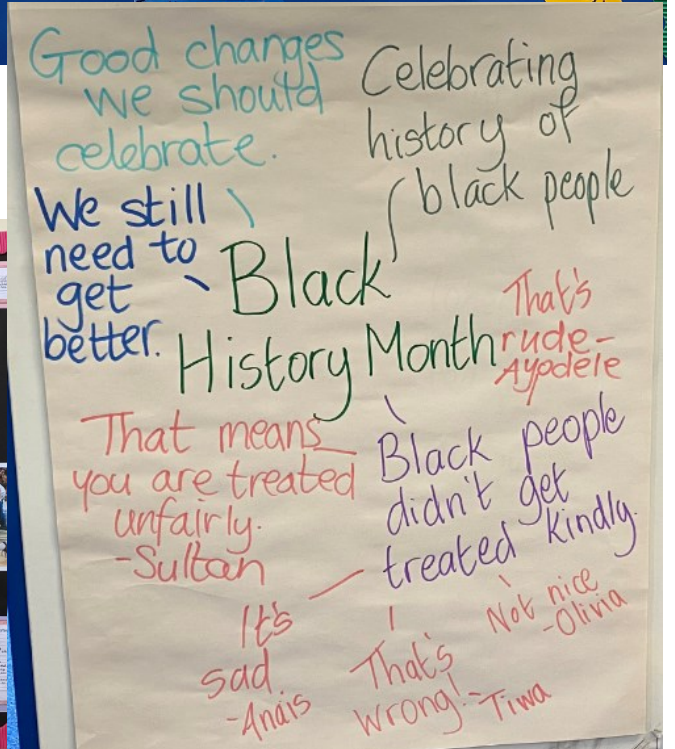 Good changes
we should
celebrate.
Celebrating
history of
black people
We still
need to
get
better.
Black
History Month
That's
rude-
Ayodele
That means
you are treated
unfairly.
-Sultan
Black people
didn't get
treated kindly.
It's
sad.
-Anais
That's
wrong!-Tiwa
Not nice
-Olivia